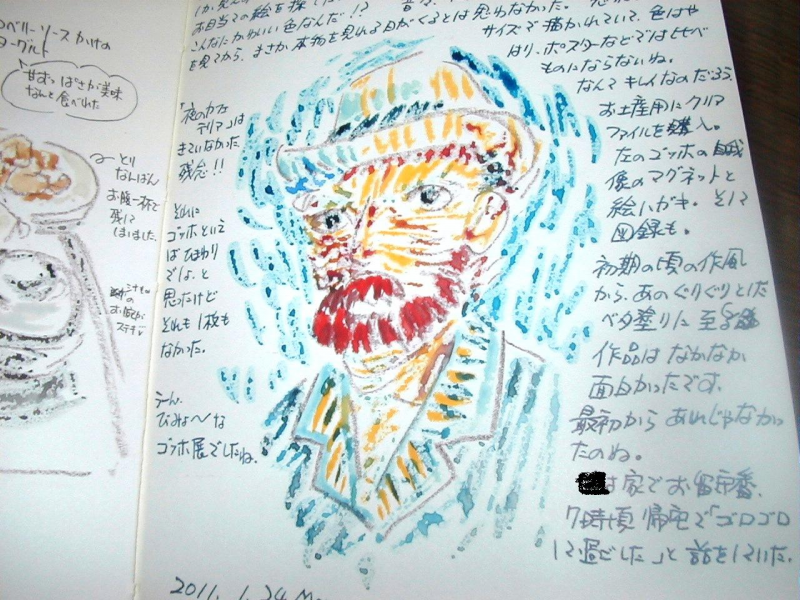 ベリーソースかけの
ヨーグルト
甘すっぱさが美味
なんと食べれた
とり
なんばん
お腹一杯で
残して
しまいました。
の
お腹が
ステキ
お当ての絵を探して
こんなにかわいい色なんだ!?
を見てから、まさか本物を見れる日がくるとは思わなかった。
サイズで描かれていて、色はや
はり、ポスターなどでは比べ
ものにならないね。
なんてキレイなのだろう。
「夜のカフェ
テリア」は
きていなかった
残念!!
それに
ゴッホといえ
ばひまわり
でしょ、と
思ったけど
それも1枚も
なかった。
うーん、
びみょ〜な
ゴッホ展でしたね。
お土産用にクリア
ファイルを購入。
左のゴッホの自我
像のマグネットと
絵ハガキ。そして
図録も。
初期の頃の作風
から、あのぐりぐりとした
ベタ塗りに至る
作品はなかなか
面白かったです。
最初からあれじゃなかっ
たのね。
は家でお留守番、
7時頃帰宅で「ゴロゴロ
して過ごした」と話をしていた。
2011. 1. 24 Mo